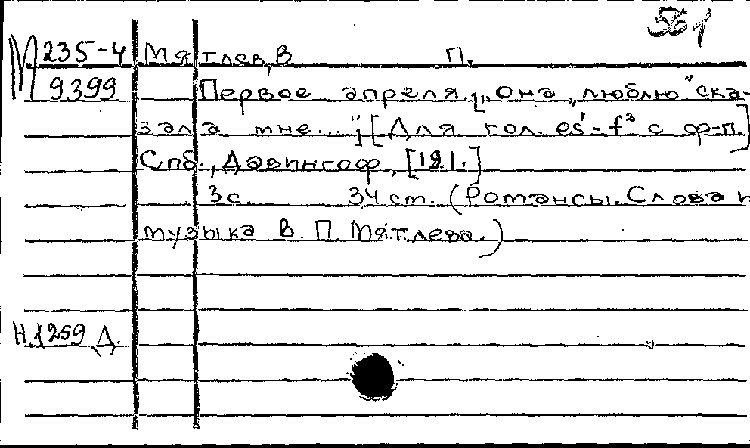 561
М 235-4 Мятлев, В. П.
9399 Первое апреля. „Она „люблю" ска-
зала мне..." [Для гол. es¹-f² с ф-п.]
Спб., Давингоф, [191.]
3с. 34 ст. (Романсы. Слова и
музыка В. П. Мятлева.)
Н. 1259 Д.